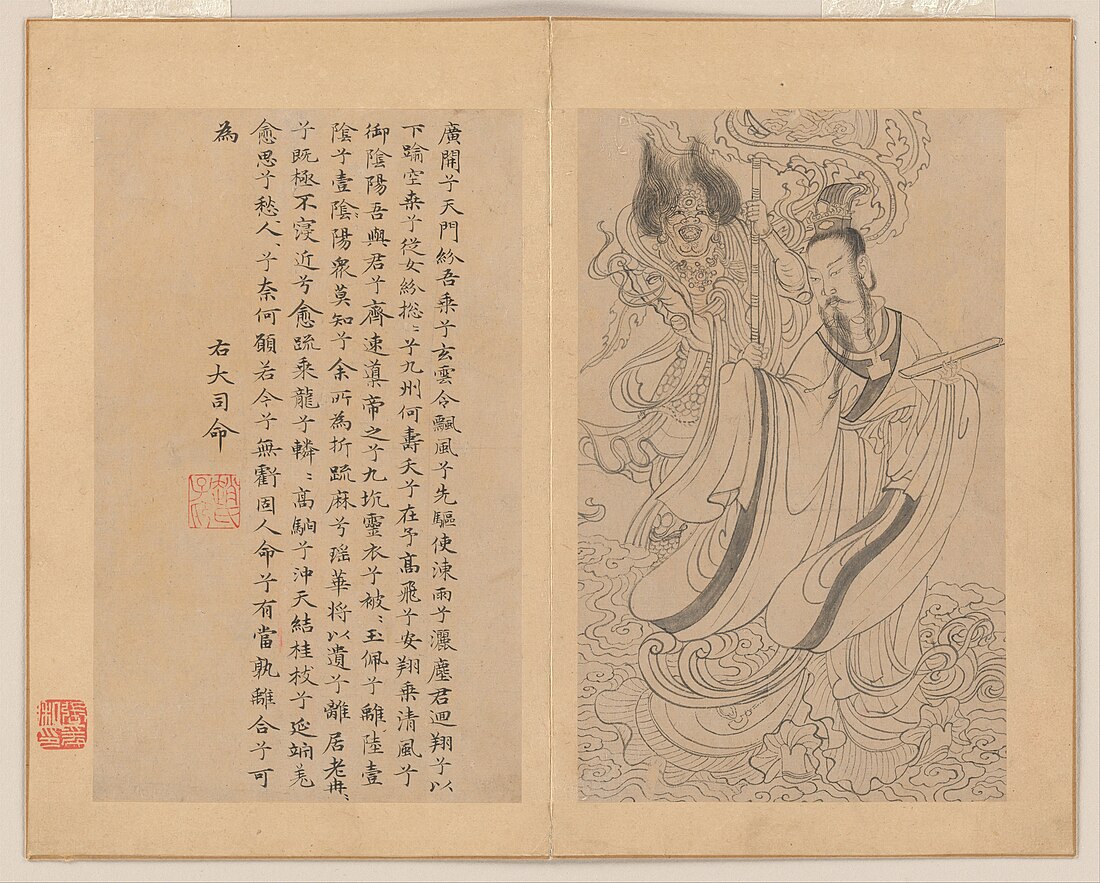 廣開兮天門紛吾乗兮玄雲令飄風兮先驅使涷雨兮灑塵君迴翔兮以
下踰空桒兮從女紛揔〻兮九州何壽夭兮在予髙飛兮安翔乗清風兮
御陰陽吾與君兮齊速導帝之兮九坑靈衣兮被〻玉佩兮離陸壹
陰兮壹陰〻陽衆莫知兮余所為折疏麻兮瑶華将以遺兮離居老冉〻
兮既極不寖近兮愈疏乗龍兮轔〻髙駟兮沖天結桂枝兮延竚羌
愈思兮愁人〻兮奈何願若今兮無虧固人命兮有當孰離合兮可
為
右大司命
趙氏子昂